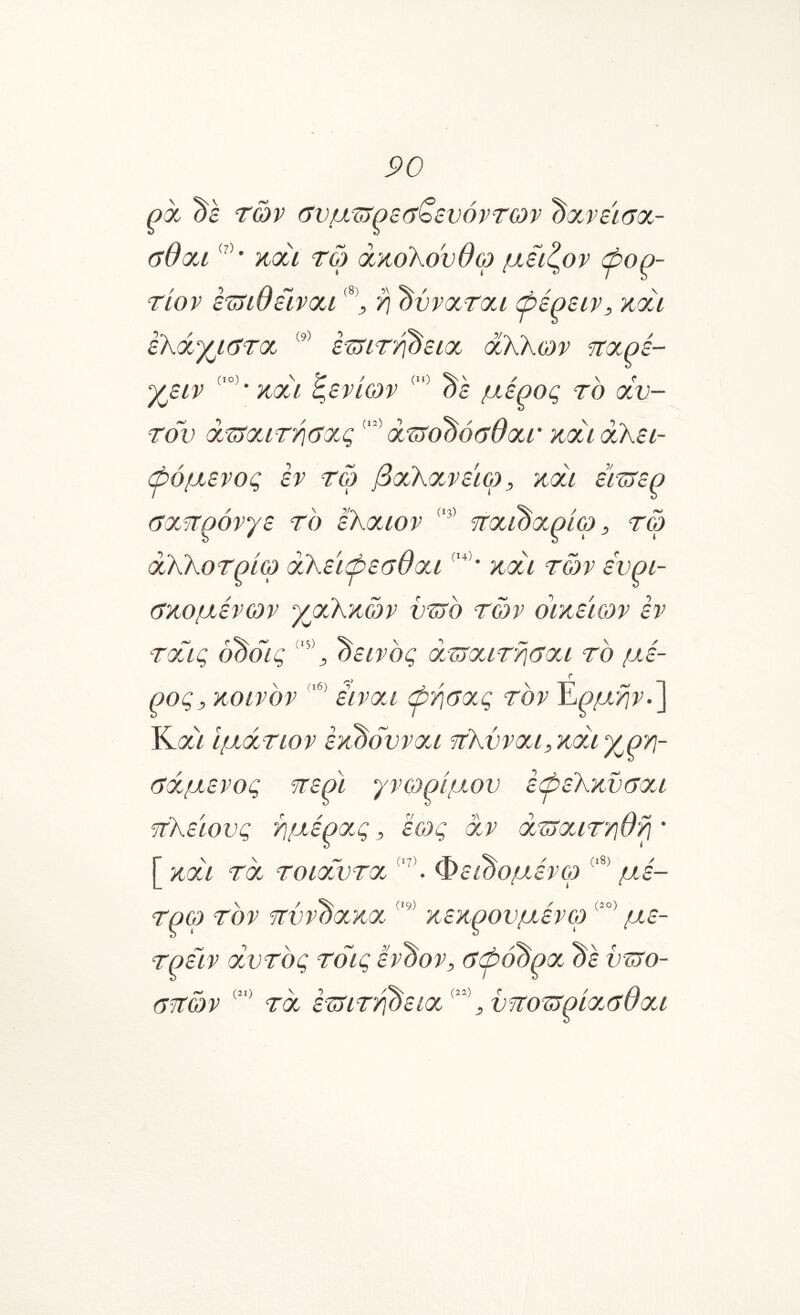 90
ρὰ δὲ τῶν συμπρεσβευόντων δανείσα-
σθαι (7)· καὶ τῷ ἀκολούθῳ μεῖζον φορ-
τίον ἐπιθεῖναι (8), ἢ δύναται φέρειν, καὶ
ἐλάχιστα (9) ἐπιτήδεια ἄλλων παρέ-
χειν (10)· καὶ ξενίων (11) δὲ μέρος τὸ αὐ-
τοῦ ἀπαιτήσας (12) ἀποδόσθαι· καὶ ἀλει-
φόμενος ἐν τῷ βαλανείῳ, καὶ εἴπερ
σαπρόνγε τὸ ἔλαιον (13) παιδαρίῳ, τῷ
ἀλλοτρίῳ ἀλείφεσθαι (14)· καὶ τῶν εὑρι-
σκομένων χαλκῶν ὑπὸ τῶν οἰκείων ἐν
ταῖς ὁδοῖς (15), δεινὸς ἀπαιτῆσαι τὸ μέ-
ρος, κοινὸν (16) εἶναι φήσας τὸν Ἑρμῆν.]
Καὶ ἱμάτιον ἐκδοῦναι πλύναι, καὶ χρη-
σάμενος περὶ γνωρίμου ἐφελκῦσαι
πλείους ἡμέρας, ἕως ἂν ἀπαιτηθῇ·
[καὶ τὰ τοιαῦτα (17). Φειδομένῳ (18) μέ-
τρῳ τὸν πύνδακα (19) κεκρουμένῳ (20) με-
τρεῖν αὐτὸς τοῖς ἔνδον, σφόδρα δὲ ὑπο-
σπῶν (21) τὰ ἐπιτήδεια (22), ὑποπρίασθαι